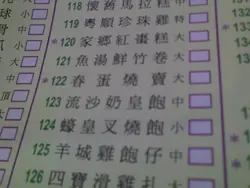 118 懷舊馬拉糕 中
119 粵順珍珠雞 特
*120 家鄉紅蛋糕 大
121 魚湯鮮竹卷 大
*122 春蛋燒賣 大
123 流沙奶皇飽 中
124 蠔皇叉燒飽 小
125 羊城雞飽仔 中
126 四寶滑雞扎 大